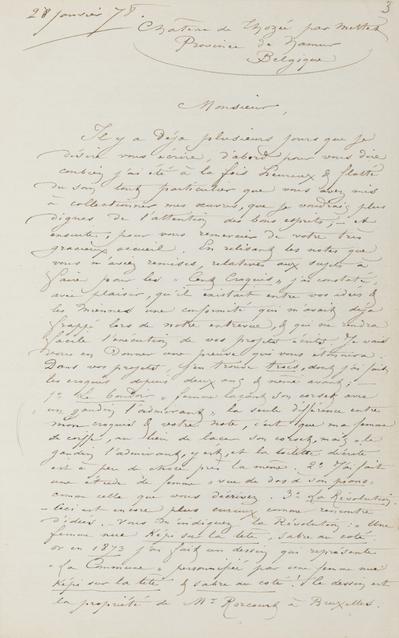 3
28 Janvier 78.
Château de Thozée par Mettet
Province de Namur
Belgique
Monsieur,
Il y a déja plusieurs jours que je
désire vous écrire, d'abord pour vous dire
combien j'ai été à la fois heureux & flatté
du soin tout particulier que vous avez mis
à collectionner mes œuvres, que je voudrais plus
dignes de l'attention des bons esprits, & et
ensuite, pour vous remercier de votre très
gracieux accueil. En relisant les notes que
vous m'avez remises, relatives aux sujets à
faire pour les « Cent Croquis » j'ai constaté
avec plaisir, qu'il existait entre vos idées &
les miennes une conformité qui m'avait déjà
frappé lors de notre entrevue, & qui me rendra
facile l'exécution de vos projets écrits. Je vais
vous en donner une preuve qui vous étonnera.
Dans vos projets j'en trouve trois, dont j'ai fait
les croquis depuis deux ans & même avant,
1º Le femme laçant son corset avec
un gandin l'admirant, la seule différence entre
mon croquis & votre note, c'est que ma femme
se coiffe, au lieu de lacer son corset, mais le
gandin l'admirant, y est, et la toilette décrite
est à peu de chose près la même. 2º J'ai fait
une étude de femme vue de dos à son piano
comme celle que vous décrivez. 3º La Révolution.
Ceci est encore plus curieux comme rencontre
d'idées. Vous m'indiquez la Révolution. Une
femme nue Képi sur la tête, sabre au coté.
or en 1873 j'en fait un dessin qui représente
« La Commune » personnifiée par une femme nue
Képi sur la tête & sabre au coté. le dessin est
la propriété de Mr à Bruxelles.